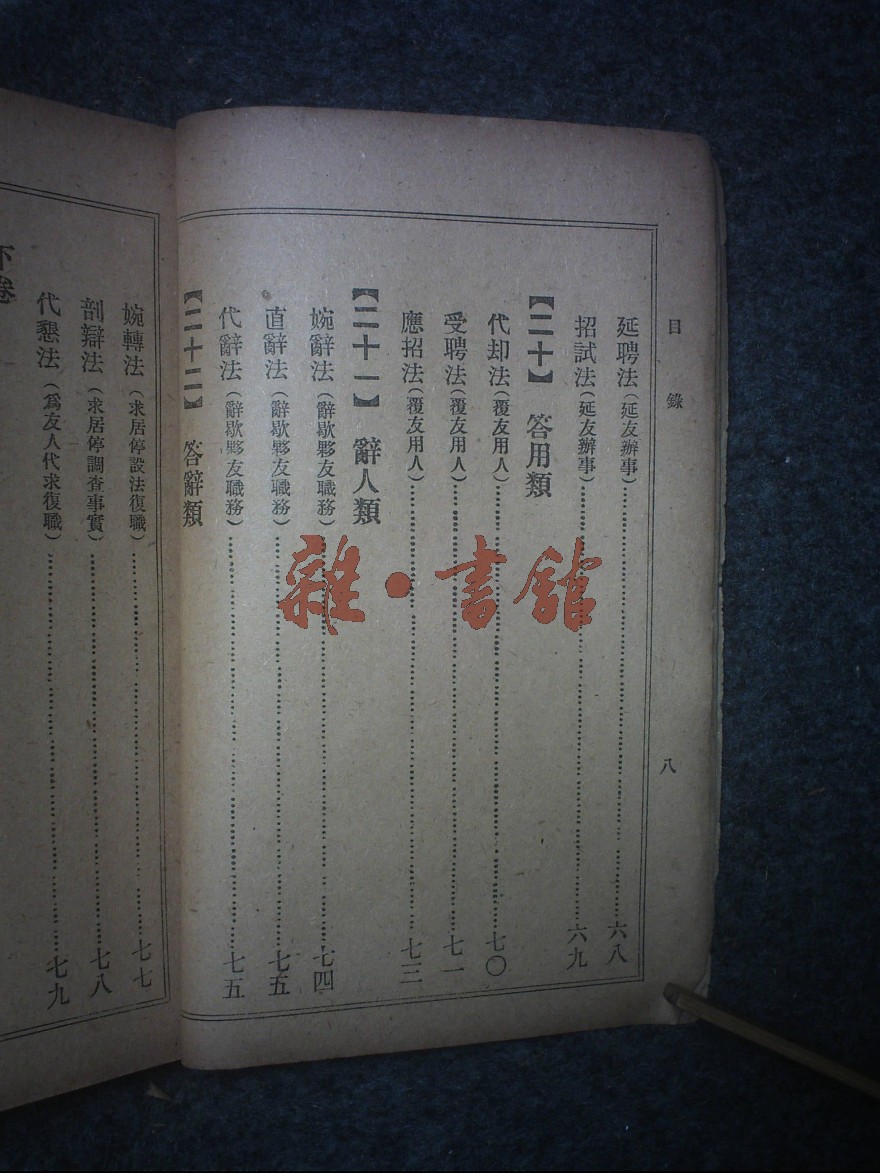 目錄
八
延聘法（延友辦事）……六八
招試法（延友辦事）……六九
【二十】 答用類
代却法（覆友用人）……七〇
受聘法（覆友用人）……七一
應招法（覆友用人）……七三
【二十一】 辭人類
婉辭法（辭歇夥友職務）……七四
直辭法（辭歇夥友職務）……七五
代辭法（辭歇夥友職務）……七五
【二十二】 答辭類
婉轉法（求居停設法復職）……七七
剖辯法（求居停調查事實）……七八
代懇法（為友人代求復職）……七九
下卷
雜·書館